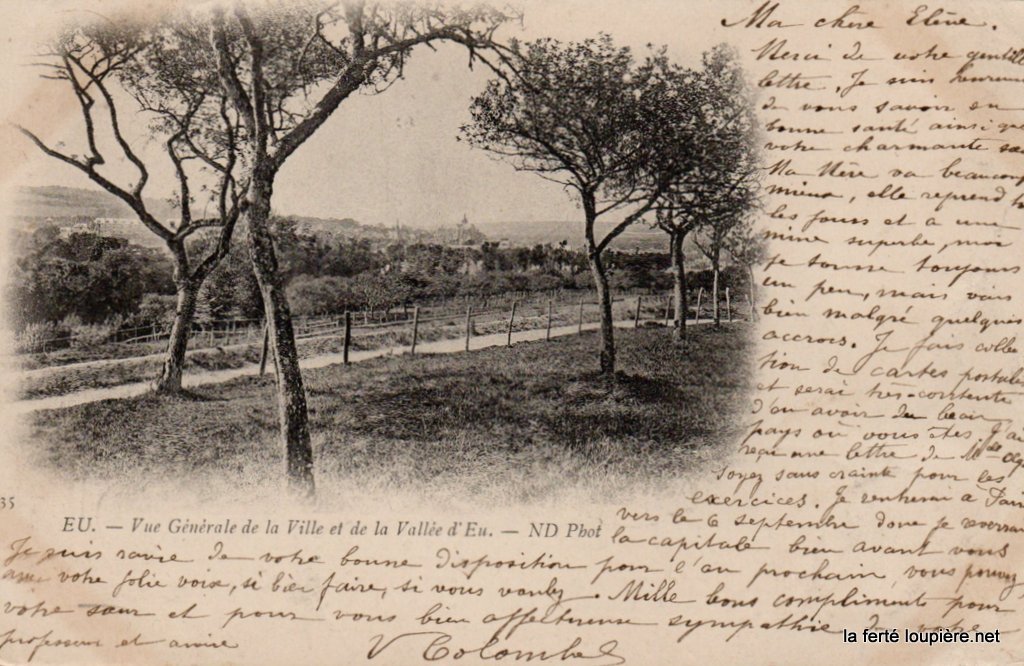 Ma chère Elène.
Merci de votre gentille
lettre. Je suis heureuse
de vous savoir en
bonne santé ainsi que
votre charmante
Ma Mère va beaucoup
mieux, elle reprend
les jours et a une
mine superbe, moi
je tousse toujours
un peu, mais vais
bien malgré quelques
accrocs. Je fais collec
tion de cartes postales
et serai très-contente
d'en avoir du beau
pays où vous êtes. J'ai
reçu une lettre de Mlle
Soyez sans crainte pour les
exercices. Je rentrerai à Paris
vers le 6 septembre donc je reverrai
la capitale bien avant vous
35
EU. — Vue Générale de la Ville et de la Vallée d'Eu. — ND Phot
Je suis ravie de votre bonne disposition pour l'an prochain, vous pouvez,
avec votre jolie voix, si bien faire, si vous voulez. Mille bons compliments pour
votre sœur et pour vous bien affectueuse sympathie de votre
professeur et amie
V Colombel
la ferté loupière.net